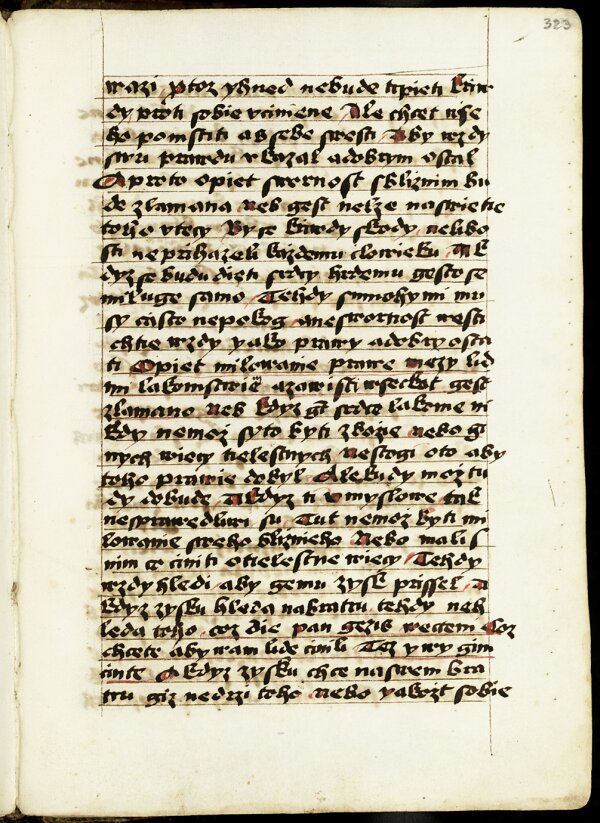 323
wrazi ptoz yhned nebude trpieti krziw
dy proti sobie vcimene Ale chcet vse
ho pomstiti ab sebe swesti Aby wzdy
swu prawdu vkazal a dobrym ostal
A proto opiet swornost s bliznim bu
de zlamana neb gest nelze na swietie
toho vtecy By se krziwdy skody nelibo
sti neprihazeli kazdemu clowieku Ak
dyz se budu dieti srdcy hrdemu gesto se
miluge samo Tehdy s mnohymi mu
sy casto nepokog a neswornost westi
chtie wzdy yako prawy a dobry osta
ti Opiet milowanie prawe mezy lid
mi lakomstwie a zawisti wseckot gest
zlamano neb kdyz gt srdce lakome ni
kdy nemoz syto byti zbozie nebo gi
nych wiecy tielestnych nestogi o to aby
toho prawie dobyl Ale kudy moz tu
dy dobude A kdyz ti v myslowe tak
nesprawedliwi su Tut nemoz byti mi
lowanie sweho blizneho Nebo mali s
nim co ciniti o tielestne wiecy Tehdy
wzdy hledi aby gemu zysk prissel A
kdyz zysku hleda na bratru tehdy neh
leda toho coz die pan gezis wectem coz
chcete aby wam lide cinili Tez y wy gim
cinte A kdyz zysku chce na swem bra
tru giz nedrzi toho Nebo yakozt sobie